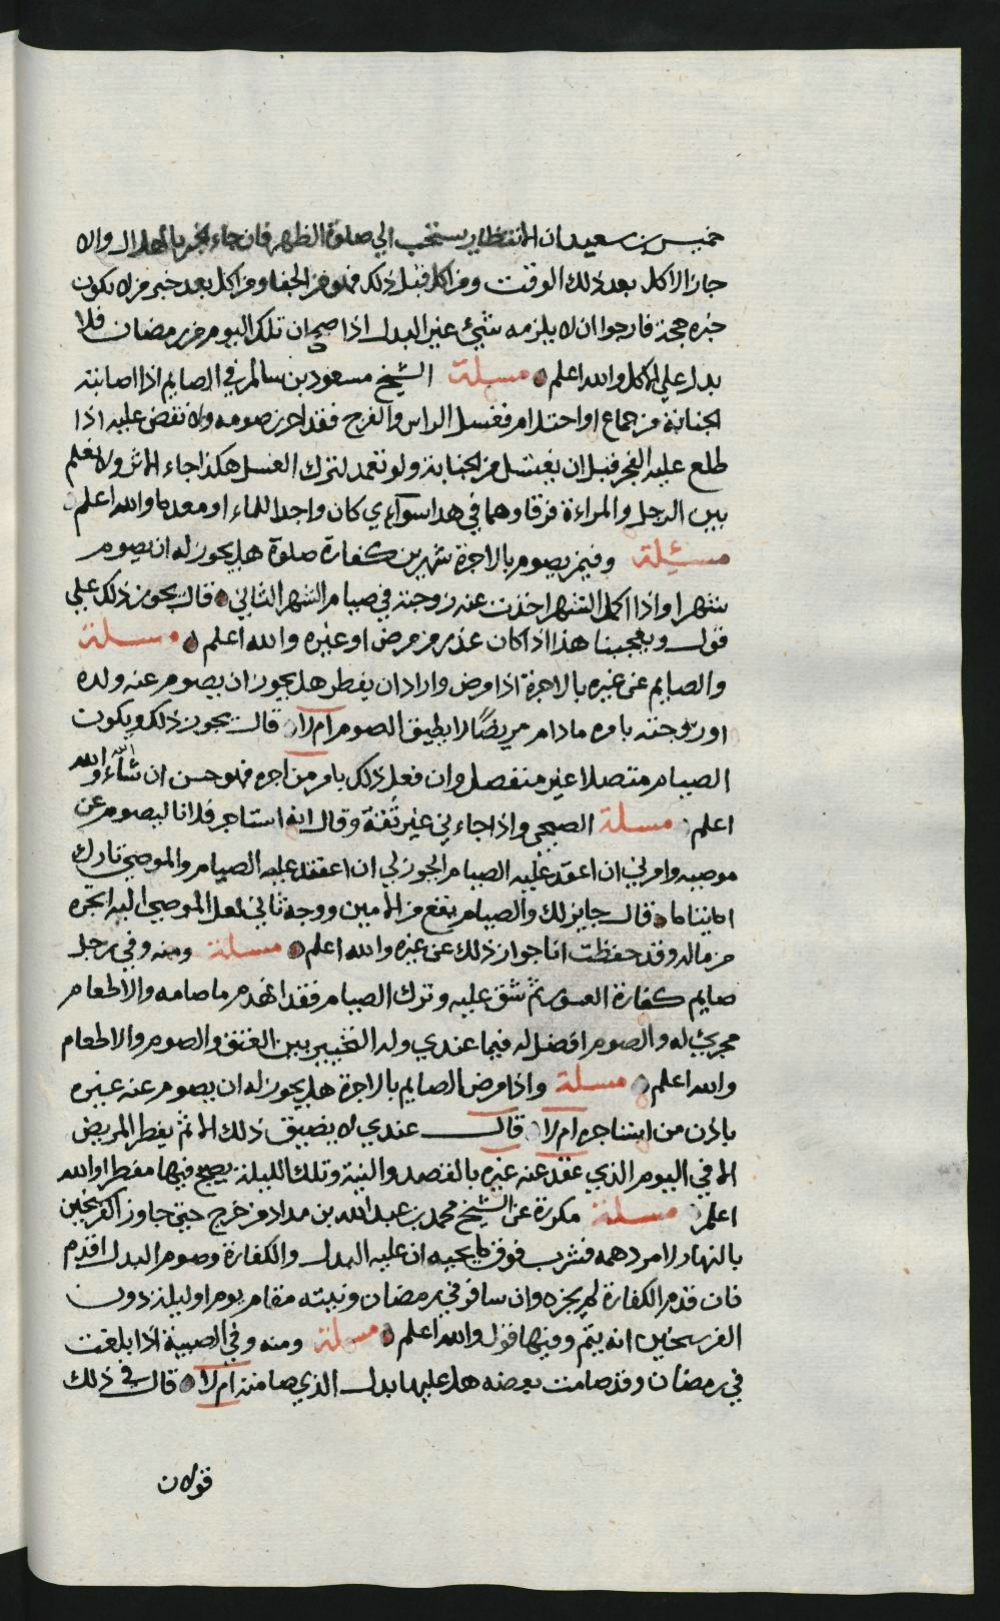 خميس بن سعيد ان الانتظار يستحب الي صلوة الظهر فان جاء الخبر بالهلال والا
جاز الاكل بعد ذلك الوقت ومن اكل قبل ذلك فهو من الجفا ومن اكل بعد خبر من لا يكون
خبره حجة فارجوا ان لا يلزمه شيء غير البدل اذا صح ان تلك اليوم من رمضان فلا
بدل علي الاكل والله اعلم مسئلة الشيخ مسعود بن سالم في الصايم اذا اصابته
الجنابة من جماع او احتلام فغسل الراس والفرج فقد احرز صومه ولا نقض عليه اذا
طلع عليه الفجر قبل ان يغتسل من الجنابة ولو تعمد لترك الغسل هكذا جاء الاثر ولا نعلم
بين الرجل والمراءة فرقا وهما في هذا سوآء ي كان واجدا للماء او معدما والله اعلم
مسئلة وفيمن يصوم بالاجرة شهرين كفارة صلوة هل يجوز له ان يصوم
شهرا واذا اكمل الشهر اخذت عنه زوجته في صيام الشهر الثاني قال يجوز ذلك علي
قول ويعجبنا هذا اذا كان عذر من مرض او غيره والله اعلم مسئلة
والصايم عن غيره بالاجرة اذا مرض واراد ان يفطر هل يجوز ان يصوم عنه ولده
او زوجته بامره مادام مريضًا لا يطيق الصوم ام لا قال يجوز ذلك ويكون
الصيام متصلا غير منفصل وان فعل ذلك بامر من اجره فهو حسن ان شآء الله والله
اعلم مسئلة الصبحي واذا جاءني غير ثقة وقال انه استاجر فلانا ليصوم عن
موصيه وامرني ان اعقد عليه الصيام ايجوز لي ان اعقد عليه الصيام والموصي تارك
ايتاما قال جايز لك والصيام يقع من الامين ووجه ثاني لعل الموصي اليه اتجره
من ماله وقد حفظت انا جواز ذلك عن غيره والله اعلم مسئلة ومنه وفي رجل
صايم كفارة العــ ثم شق عليه وترك الصيام فقد انهدم ما صامه والاطعام
مجزئ له والصوم افضل له فيما عندي وله التخيير بين العتق والصوم والاطعام
والله اعلم مسئلة واذا مرض الصايم بالاجرة هل يجوز له ان يصوم عنه غيره
باذن من استاجره ام لا قال عندي لا يضيق ذلك الا ثم يفطر المريض
الا في اليوم الذي عقد عنه غيره بالقصد والنية وتلك الليلة يصبح فيها مفطرا والله
اعلم مسئلة مكررة عن الشيخ محمد بن عبدالله بن مداد من خرج حتي جاوز الفرسخين
بالنهار لامر دهمه فشرب فوق ما يحييه ان عليه البدل والكفارة وصوم البدل اقدم
فان قدم الكفارة لم يجزه وان سافر في رمضان ونيته مقام يوم او ليلة دون
الفرسخين انه يتم وفيها قول والله اعلم مسئلة ومنه وفي الصبية اذا بلغت
في رمضان وقد صامت بعضه هل عليها بدل الذي صامته ام لا قال في ذلك
قولان